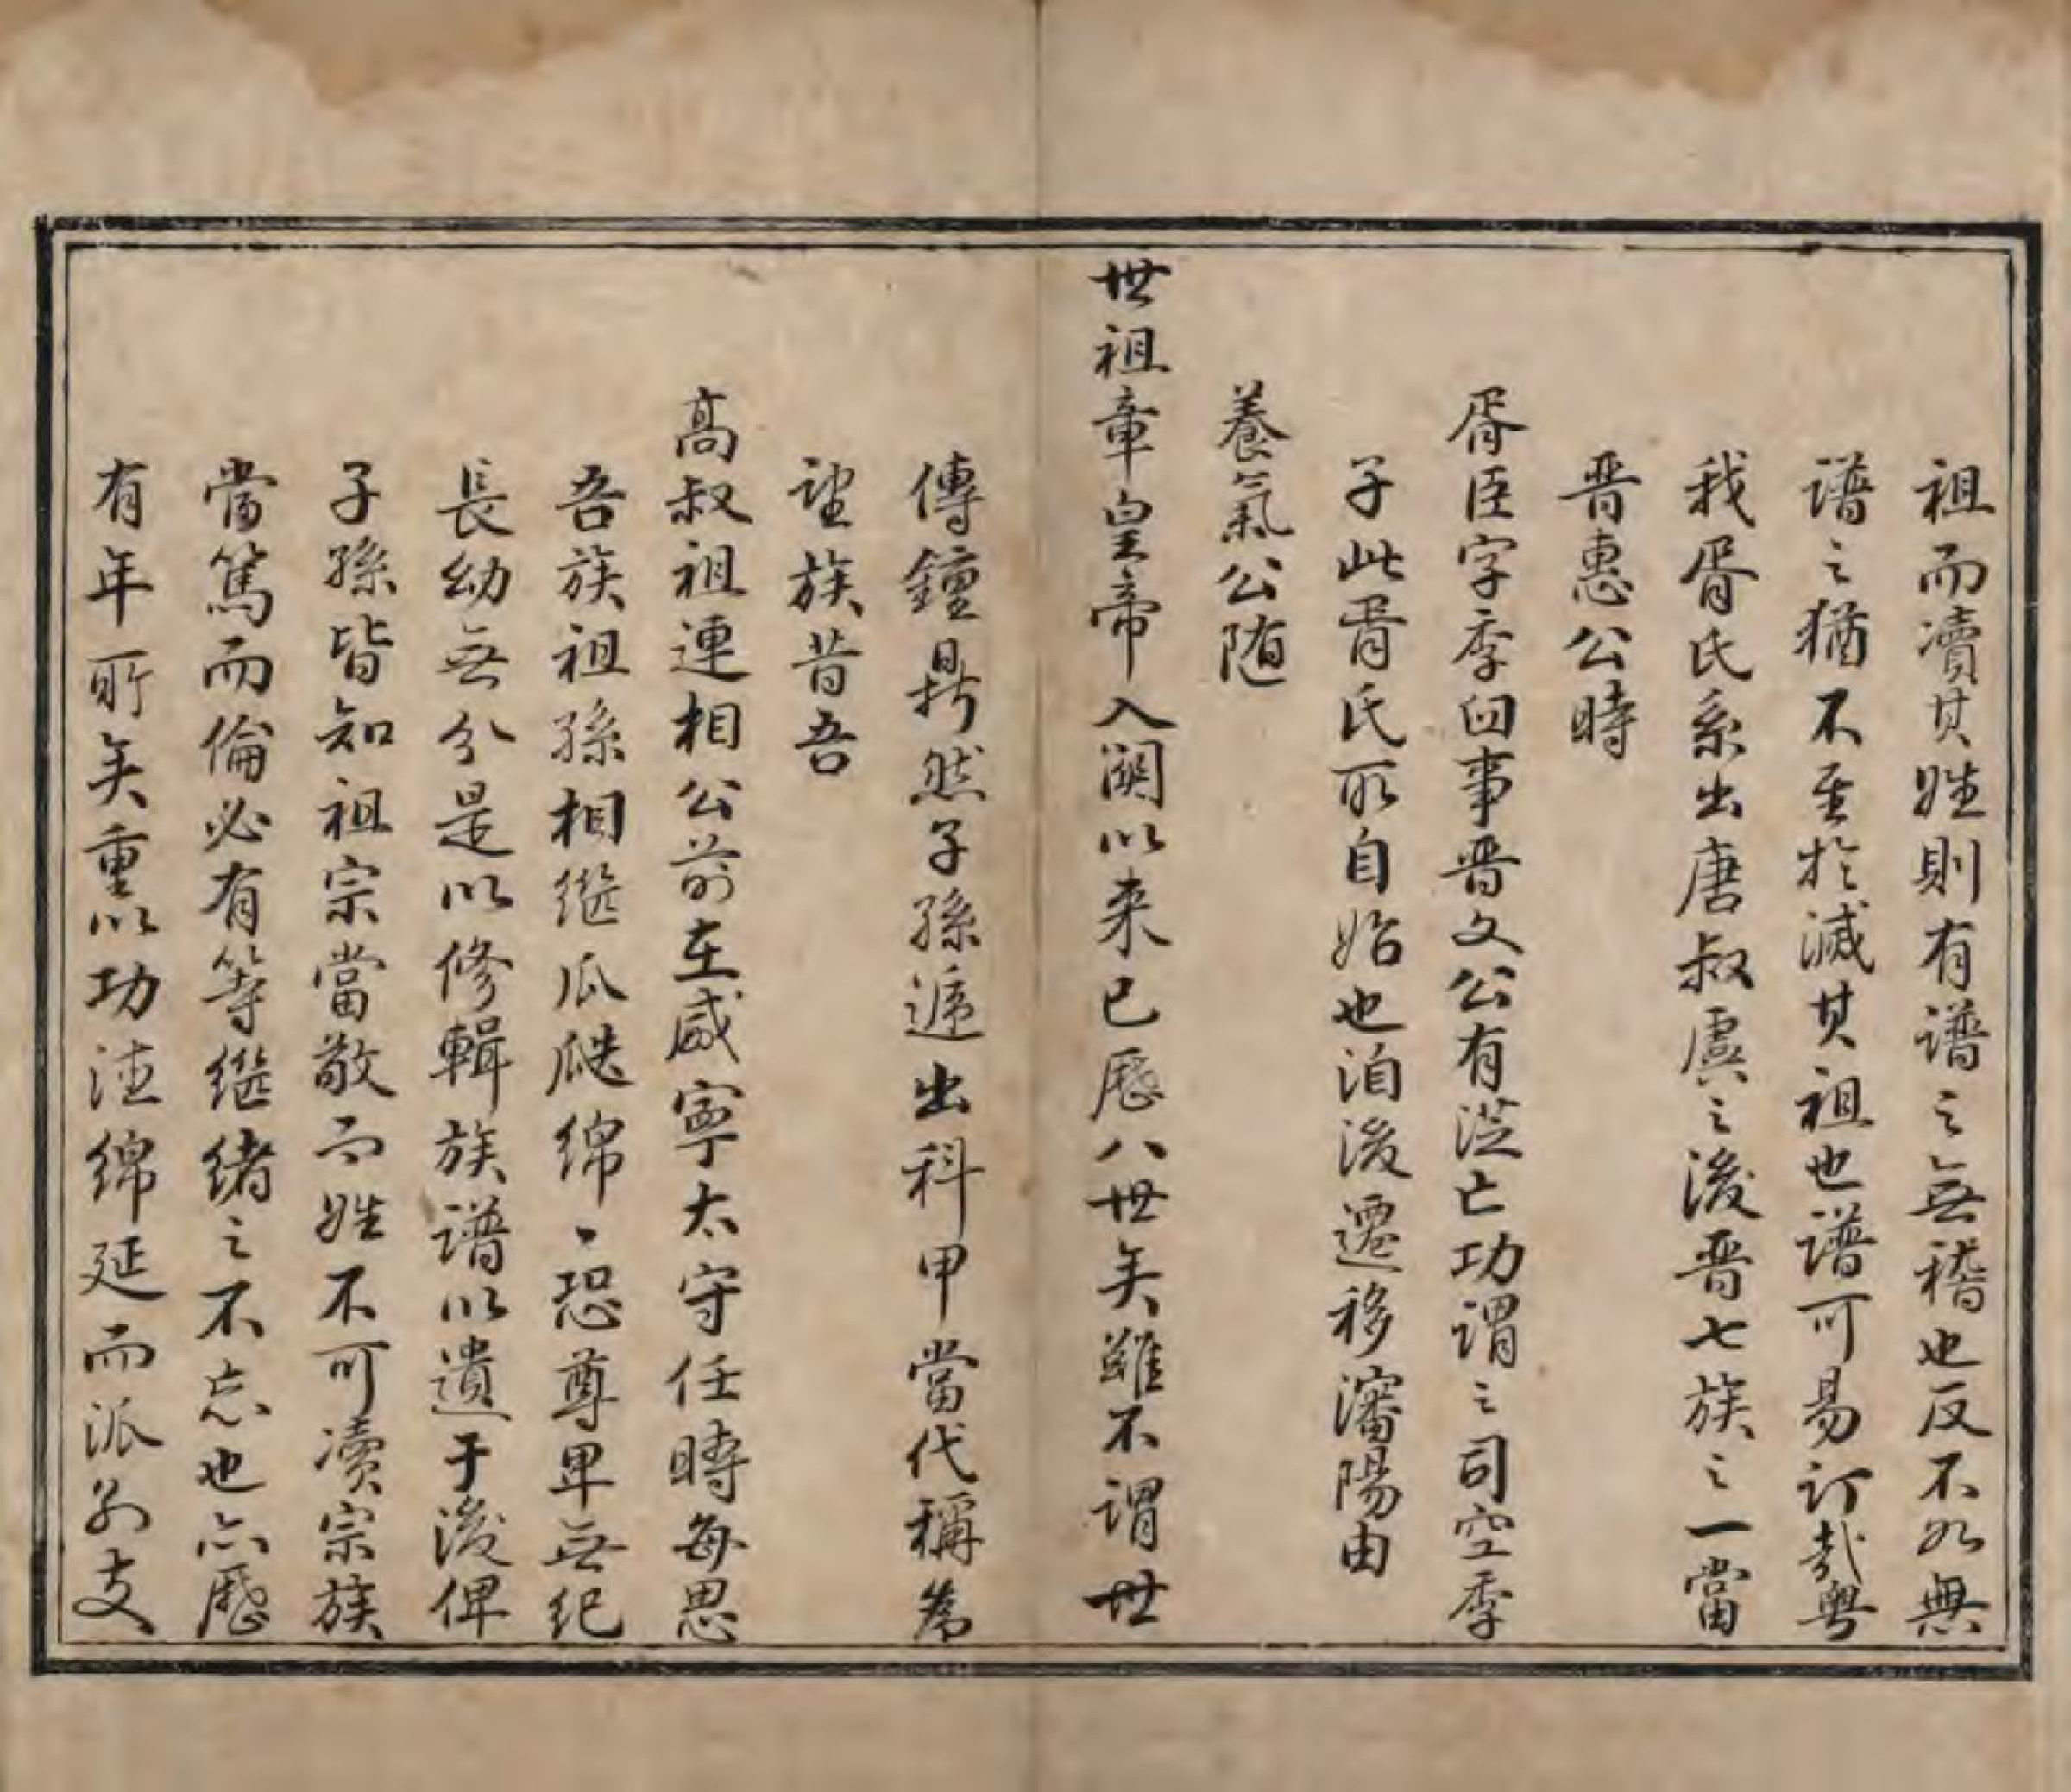 祖而凟其姓則有譜之無稽也反不如無
譜之猶不至於滅其祖也譜可易訂哉粵
我胥氏系出唐叔虞之後晋七族之一當
晋惠公時
胥臣字季曰事晋文公有從亡功謂之司空季
子此胥氏所自始也洎後遷移瀋陽由
養氣公随
世祖章皇帝入關以来已歷八世矣雖不謂世
傳鐘鼎然子孫遞出科甲當代稱為
望族昔吾
高叔祖連相公前在咸寧太守任時每思
吾族祖孫相継瓜瓞綿、恐尊卑無紀
長幼無分是以修輯族譜以遺于後俾
子孫皆知祖宗當敬而姓不可凟宗族
當篤而倫必有等継緒之不忘也亦歷
有年所矣重以功德綿延而派別支